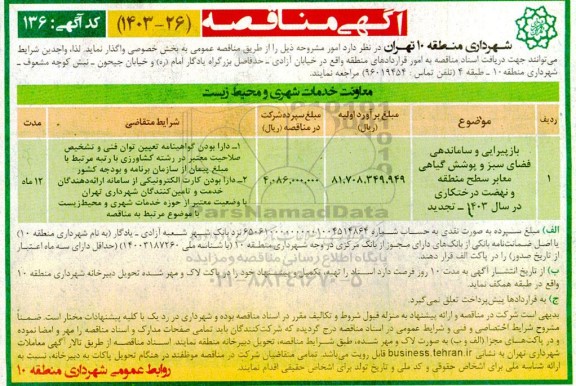 آگهی مناقصه
(۱۴۰۳-۲۶)
کد آگهی: ۱۳۶
شهرداری منطقه ۱۰ تهران در نظر دارد امور مشروحه ذیل را از طریق مناقصه عمومی به بخش خصوصی واگذار نماید. لذا، واجدین شرایط
می‌توانند جهت دریافت اسناد مناقصه به امور قراردادهای منطقه واقع در خیابان آزادی - حدفاصل بزرگراه یادگار امام (ره) و خیابان جیحون - نبش کوچه مشعوف -
شهرداری منطقه ۱۰ - طبقه ۴ (تلفن تماس: ۹۶۰۱۹۴۵۴) مراجعه نمایند.
معاونت خدمات شهری و محیط زیست
ردیف
موضوع
مبلغ برآورد اولیه (ریال)
مبلغ سپرده شرکت در مناقصه (ریال)
شرایط متقاضی
مدت
۱
بازپیرایی و ساماندهی
فضای سبز و پوشش گیاهی
معابر سطح منطقه
و نهضت درختکاری
در سال ۱۴۰۳ - تجدید
۸۱,۷۰۸,۳۴۹,۹۴۹
۴,۰۸۶,۰۰۰,۰۰۰
۱- دارا بودن گواهینامه تعیین توان فنی و تشخیص
صلاحیت معتبر در رشته کشاورزی با رتبه مرتبط با
مبلغ پیمان از سازمان برنامه و بودجه کشور
۲- دارا بودن کارت الکترونیکی از سامانه ارائه‌دهندگان
خدمت و تامین‌کنندگان شهرداری تهران
با وضعیت معتبر از حوزه خدمات شهری و محیط‌زیست
با موضوع مرتبط به مناقصه
۱۲ ماه
الف) مبلغ سپرده به صورت نقدی به حساب شماره
نزد بانک شهر شعبه آزادی - یادگار (به نام شهرداری منطقه ۱۰)
یا اصل ضمانت‌نامه بانکی از بانک‌های دارای مجوز از بانک مرکزی در وجه شهرداری منطقه ۱۰ (با شناسه ملی ۱۴۰۰۳۱۸۷۲۶۰) (حداقل دارای سه ماه اعتبار
از تاریخ صدور) را در پاکت الف قرار دهند.
ب) از تاریخ انتشار آگهی به مدت ۱۰ روز فرصت دارد اسناد را تهیه، تکمیل و پیشنهاد خود را در پاکت لاک و مهر شده تحویل دبیرخانه شهرداری منطقه ۱۰
واقع در طبقه همکف نماید.
ج) به قراردادها پیش‌پرداخت تعلق نمی‌گیرد.
بدیهی است شرکت در مناقصه و ارائه پیشنهاد به منزله قبول شروط و تکالیف مقرر در اسناد مناقصه بوده و شهرداری در رد یک یا کلیه پیشنهادات مختار است. ضمناً
مشروح شرایط اختصاصی و فنی و شرایط عمومی در اسناد مناقصه درج گردیده که شرکت‌کنندگان باید تمامی صفحات مدارک و اسناد مناقصه را مهر و امضا نموده
و در پاکت‌های مجزا (الف و ب) به صورت لاک و مهر شده، طبق شرایط مناقصه، تحویل دبیرخانه منطقه نمایند. اسناد مناقصه از طریق تالار آگهی معاملات
شهرداری تهران به نشانی business.tehran.ir قابل رویت می‌باشد. تمامی متقاضیان شرکت در مناقصه موظفند در هنگام تحویل پاکات به دبیرخانه، نسبت به
ارائه شناسه ملی برای اشخاص حقوقی و کد ملی و تاریخ تولد برای اشخاص حقیقی اقدام نمایند.
روابط عمومی شهرداری منطقه ۱۰
ParsNamadData
پایگاه اطلاع رسانی مناقصه و مزایده
۰۲۱-۸۸۳۴۹۶۷۰-۵